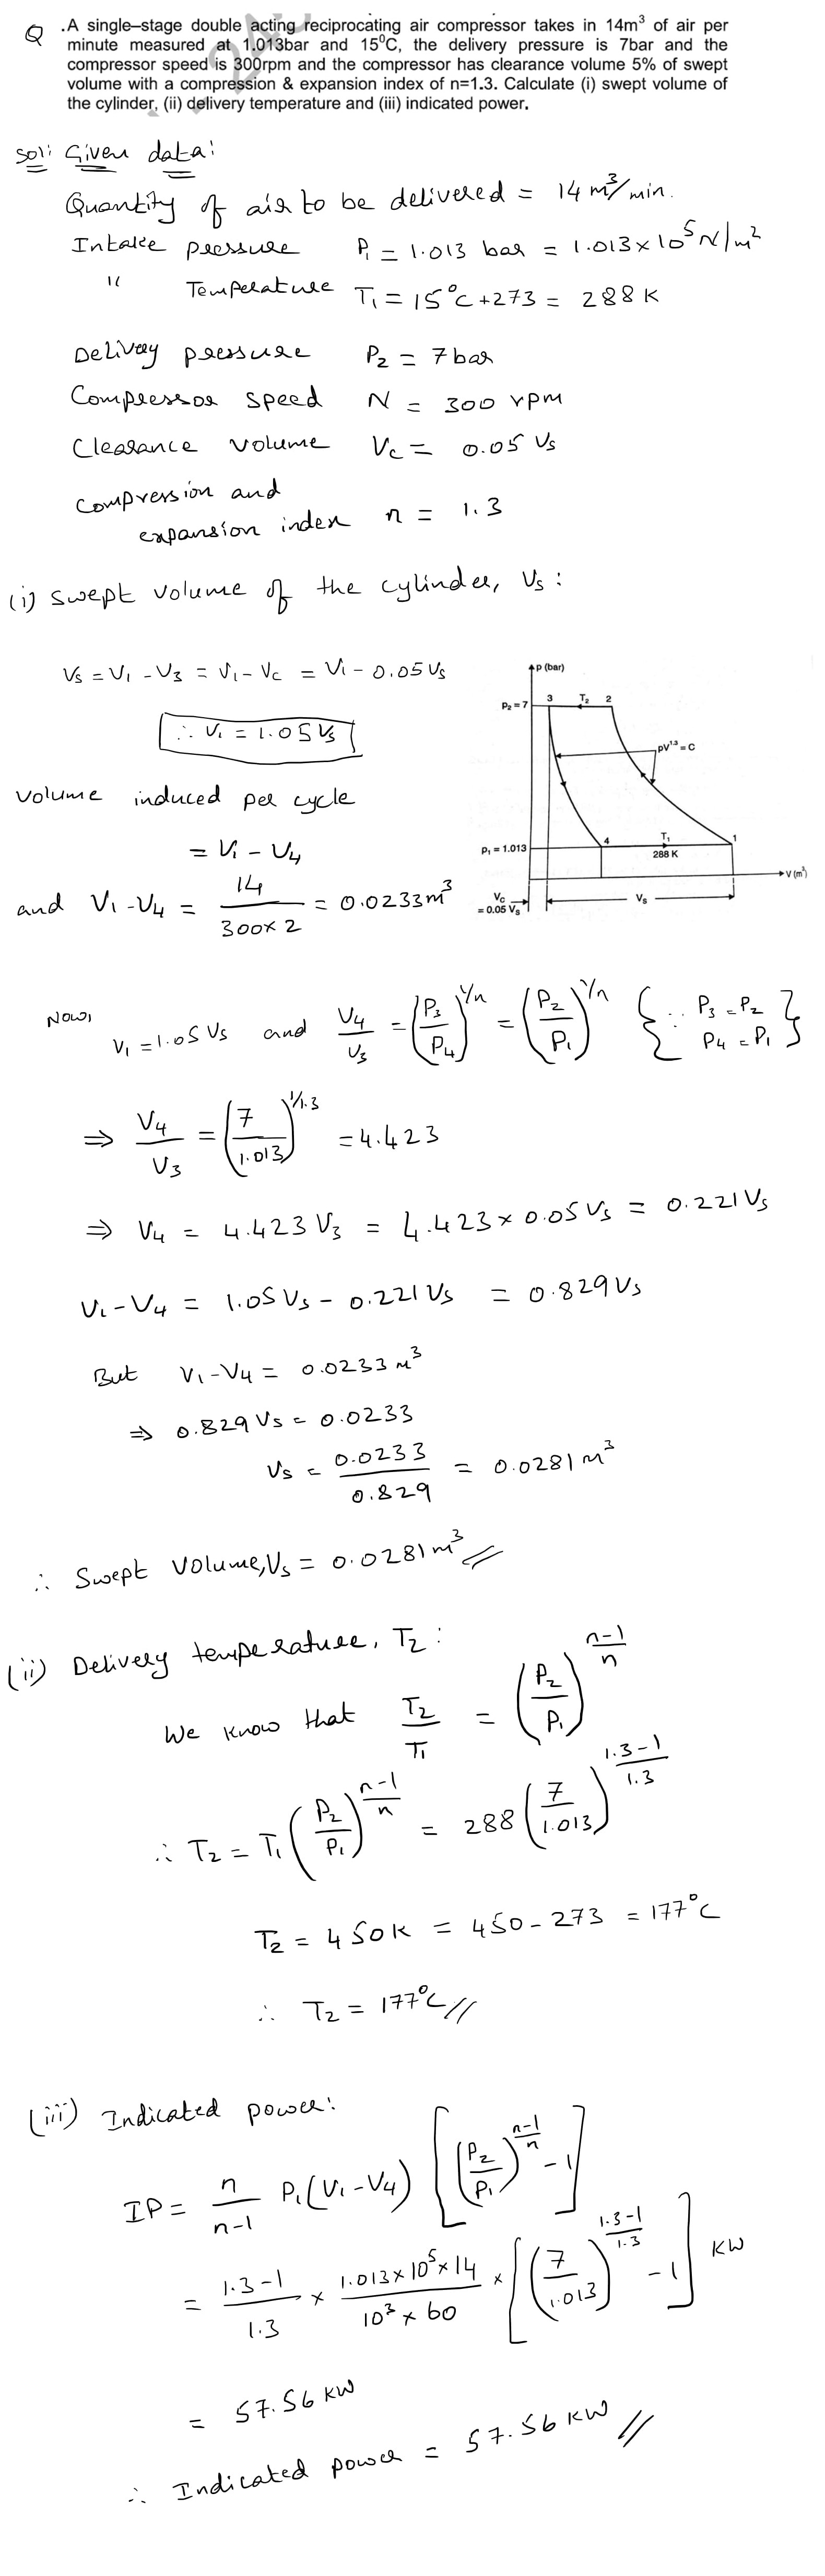 Q .A single–stage double acting reciprocating air compressor takes in 14m³ of air per
minute measured at 1.013bar and 15⁰C, the delivery pressure is 7bar and the
compressor speed is 300rpm and the compressor has clearance volume 5% of swept
volume with a compression & expansion index of n=1.3. Calculate (i) swept volume of
the cylinder, (ii) delivery temperature and (iii) indicated power.
Sol: Given data:
Quantity of air to be delivered = 14 m³/min.
Intake pressure P₁ = 1.013 bar = 1.013×10⁵ N/m²
" Temperature T₁ = 15°C+273 = 288 K
Delivery pressure P₂ = 7 bar
Compressor speed N = 300 rpm
Clearance volume Vc = 0.05 Vs
Compression and
expansion index n = 1.3
(i) Swept volume of the cylinder, Vs :
Vs = V₁ - V₃ = V₁ - Vc = V₁ - 0.05 Vs
∴ V₁ = 1.05 Vs
p (bar)
p₂ = 7
3 T₂ 2
pV¹·³ = C
p₁ = 1.013
4 T₁ 1
288 K
V (m³)
Vc
= 0.05 Vs
Vs
Volume induced per cycle
= V₁ - V₄
and V₁ - V₄ = 14/(300×2) = 0.0233 m³
Now, V₁ = 1.05 Vs and V₄/V₃ = (P₃/P₄)^(1/n) = (P₂/P₁)^(1/n) {∵ P₃ = P₂
P₄ = P₁}
⇒ V₄/V₃ = (7/1.013)^(1/1.3) = 4.423
⇒ V₄ = 4.423 V₃ = 4.423 × 0.05 Vs = 0.221 Vs
V₁ - V₄ = 1.05 Vs - 0.221 Vs = 0.829 Vs
But V₁ - V₄ = 0.0233 m³
⇒ 0.829 Vs = 0.0233
Vs = 0.0233/0.829 = 0.0281 m³
∴ Swept Volume, Vs = 0.0281 m³ //
(ii) Delivery temperature, T₂ :
We know that T₂/T₁ = (P₂/P₁)^((n-1)/n)
∴ T₂ = T₁ (P₂/P₁)^((n-1)/n) = 288 (7/1.013)^((1.3-1)/1.3)
T₂ = 450K = 450 - 273 = 177°C
∴ T₂ = 177°C //
(iii) Indicated power:
IP = n/(n-1) P₁(V₁ - V₄) [(P₂/P₁)^((n-1)/n) - 1]
= (1.3-1)/1.3 × (1.013×10⁵×14)/(10³×60) × [(7/1.013)^((1.3-1)/1.3) - 1] KW
= 57.56 KW
∴ Indicated power = 57.56 KW //